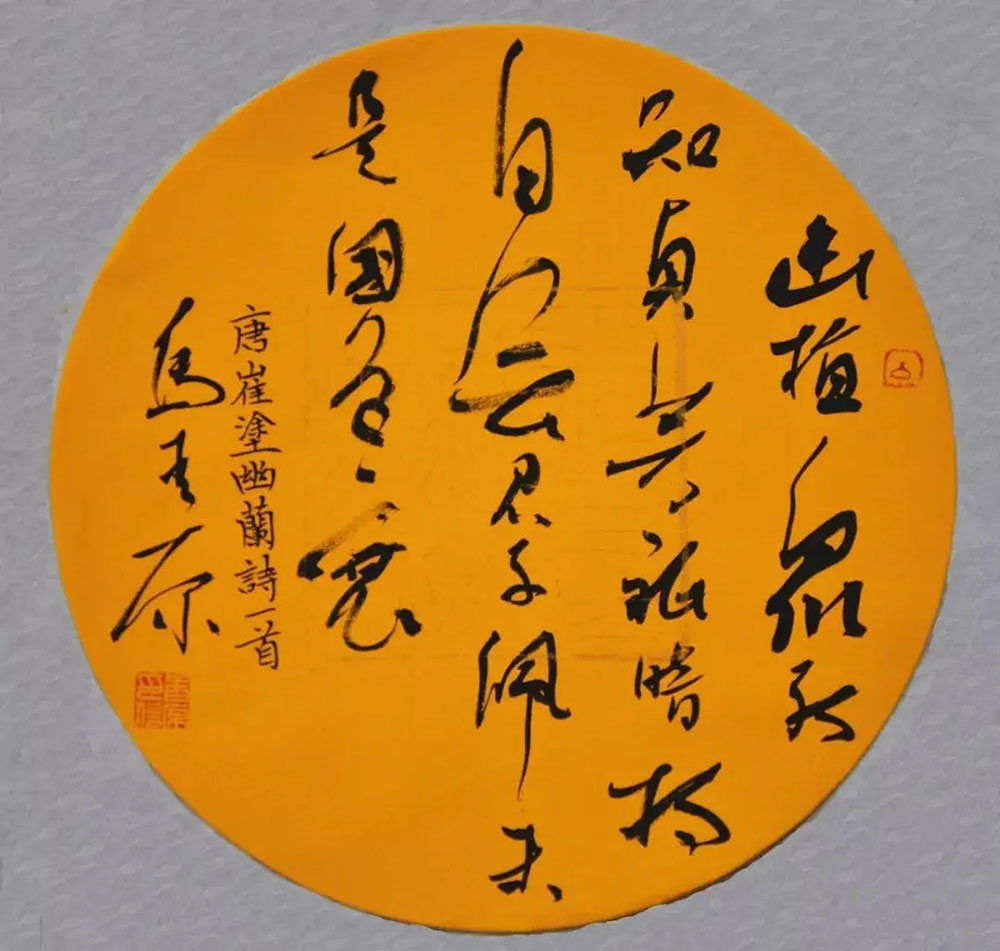 幽植眾能
知貞芳祇暗持
自無君子佩未
是國香衰
唐崔塗幽蘭詩一首
馬青原